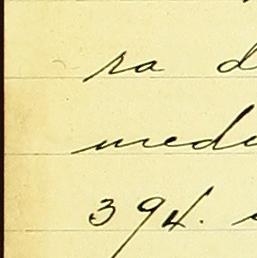 ra d
med
394.